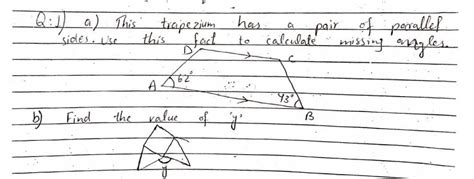 Q:1) a) This trapezium has a pair of parallel
sides. Use this fact to calculate missing angles.
D
C
A 62°
43°
B
b) Find the value of 'y'
y